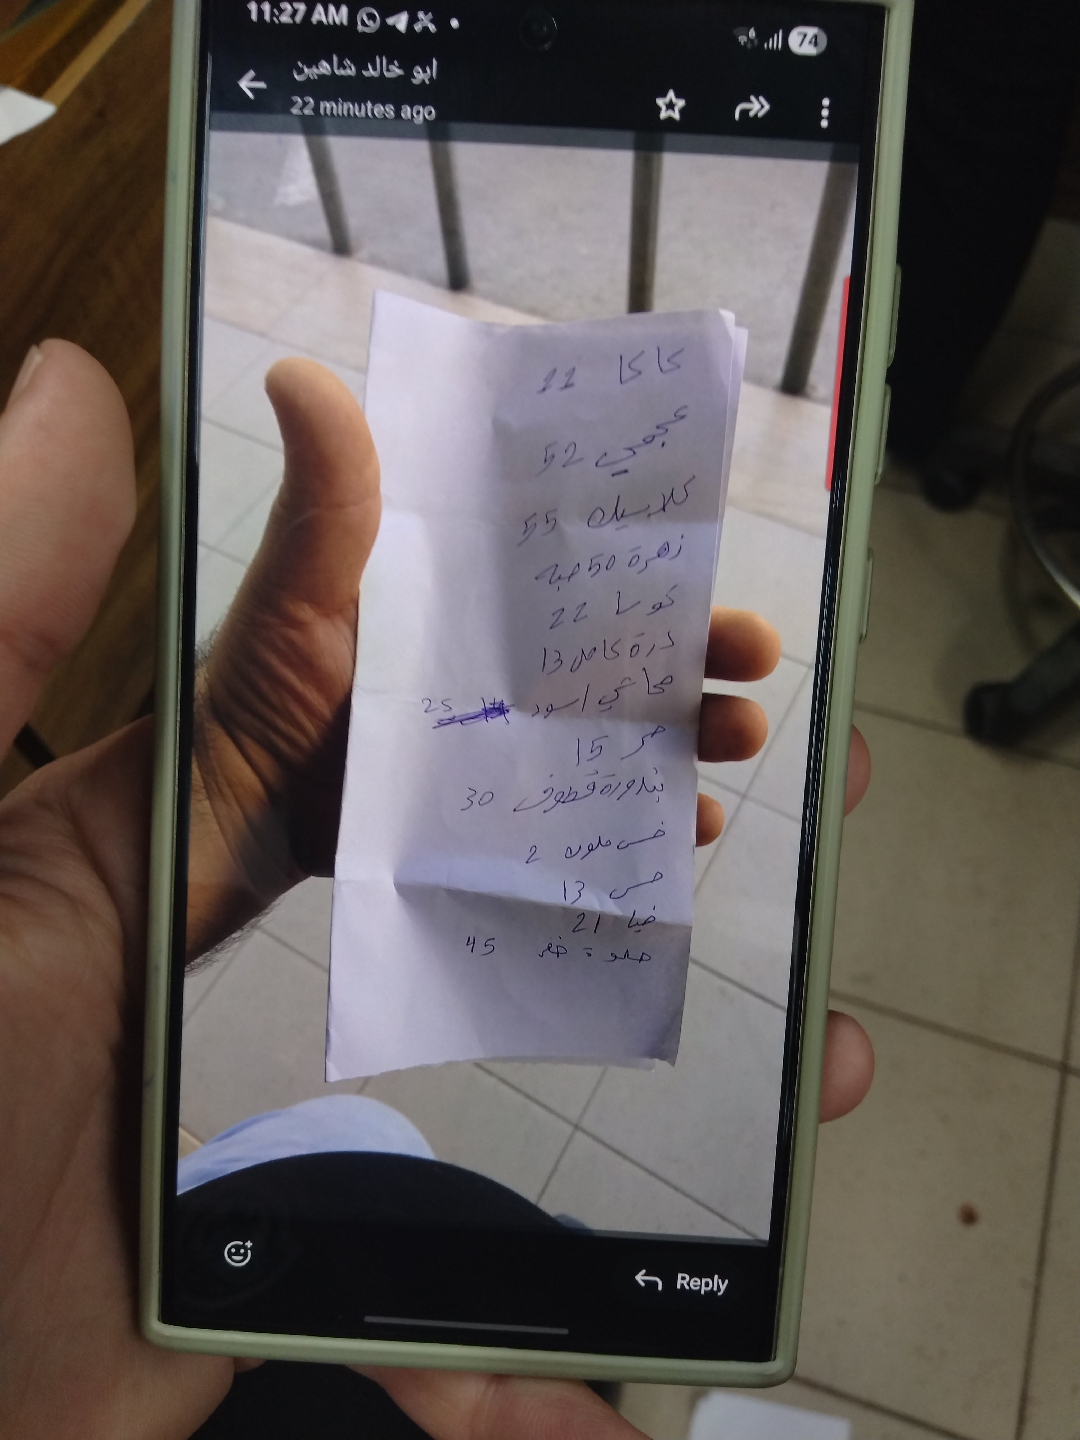 11:27 AM
74
ابو خالد شاهين
22 minutes ago
كاكا 11
عجمي 52
كلاسيك 55
زهرة 50 حبه
كوسا 22
درة كامل 13
محاشي اسود 25
حر 15
بندورة قطوف 30
خس ملون 2
خس 13
خيا 21
حلوة خضر 45
Reply